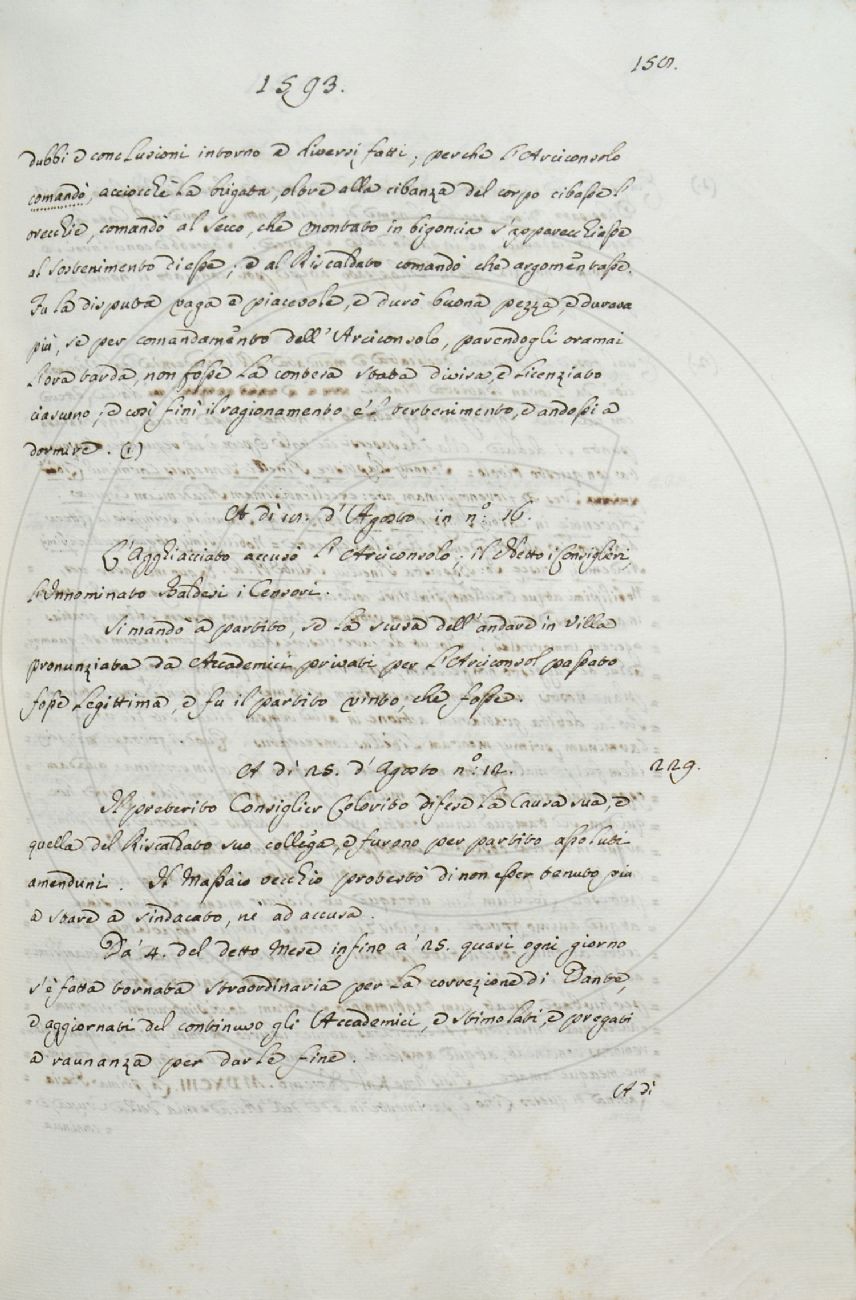 155.
1593.
dubbi e conclusioni intorno a diversi fatti; perche l'Arciconsolo
comandò, acciocchè la brigata, oltre alla cibanza del corpo cibasse l'
orecchie, comandò al Secco, che montato in bigoncia s'apparecchiasse
al sostenimento di esse; e al Riscaldato comandò che argomentasse.
Fu la disputa vaga e piacevole, e durò buona pezza, e durava
più, se per comandamento dell'Arciconsolo, parendogli oramai
l'ora tarda, non fosse la contesa stata divisa, e licenziato
ciascuno; e così finì il ragionamento e 'l trattenimento, e andossi a
dormire. (1)
A dì d'Agosto in n.º 16.
L'Agghiacciato accusò l'Arciconsolo; il i Consiglieri,
l'Innominato Baldesi i Censori.
Si mandò a partito, se la scusa dell'andare in Villa
pronunziata da Accademici privati per l'Arciconsol passato
fosse legittima, e fu il partito vinto, che fosse.
A dì 25. d'Agosto n.º 12.
229.
Il preterito Consiglier Colorito difese la Causa sua, e
quella del Riscaldato suo collega, e furono per partito assoluti
amenduni. Il Massaio vecchio protestò di non esser tenuto più
a stare a sindacato, nè ad accusa.
Da' 4. del detto Mese infino a' 25. quasi ogni giorno
s'è fatta tornata straordinaria per la correzione di Dante,
e aggiornati del continuo gli Accademici, e stimolati, e pregati
a raunanza per darle fine.
A dì